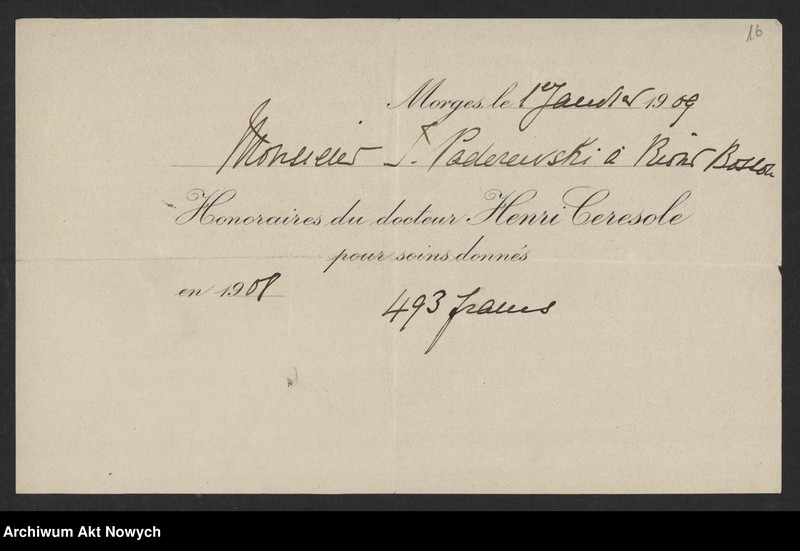 16
Morges, le 1er Janvier 1909
Monsieur I. Paderewski à Riond Bosson
Honoraires du docteur Henri Ceresole
pour soins donnés
en 1908
493 francs
Archiwum Akt Nowych